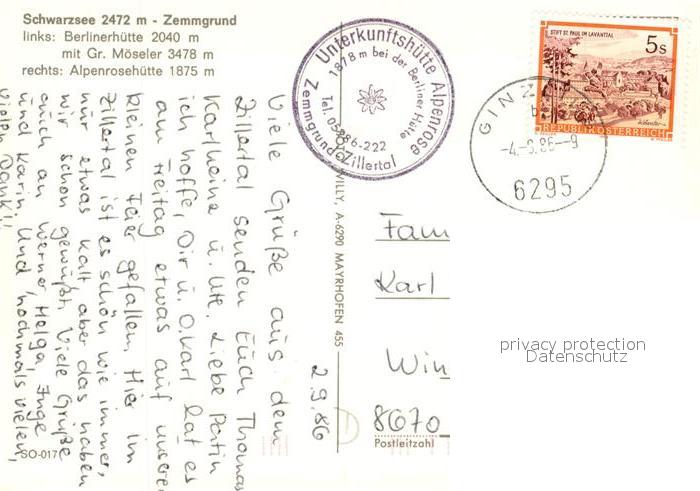 Schwarzsee 2472 m - Zemmgrund
links: Berlinerhütte 2040 m
mit Gr. Möseler 3478 m
rechts: Alpenrosehütte 1875 m
Unterkunftshütte Alpenrose
1878 m bei der Berliner Hütte
Tel. 05286-222
Zemmgrund Zillertal
STIFT ST. PAUL IM LAVANTTAL
5 S
REPUBLIK ÖSTERREICH
GINZ
-4.-9.86--9
6295
Viele Grüße aus dem
Zillertal senden Euch Thomas
Karlheinz u. Ute. Liebe
ich hoffe, Dir u. O. Karl hat es
am Freitag etwas auf unserer
kleinen Feier gefallen. Hier im
Zillertal ist es schön wie immer,
nur etwas kalt aber das haben
wir schon gewußt. Viele Grüße
auch an Werner, Helga, Inge
und Karin. Und nochmals vielen,
vielen Dank!!
2.9.86
WILLY, A-6290 MAYRHOFEN 455
Fam
Karl
Win
8670
Postleitzahl
SO-017
privacy protection
Datenschutz